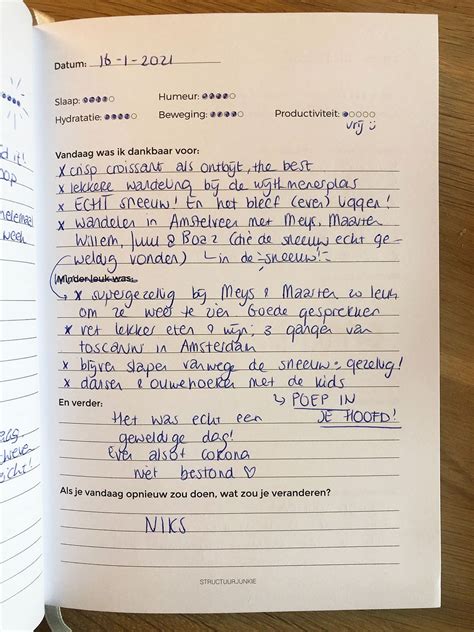 Datum: 16-1-2021
Slaap:
Humeur:
Hydratatie:
Beweging:
Productiviteit:
vrij
Vandaag was ik dankbaar voor:
x crisp croissant als ontbijt, the best
x lekkere wandeling bij de wijthmenerplas
x ECHT sneeuw! En het bleef (even) liggen!
x wandelen in Amstelveen met Meys, Maarten
Willem, Juul & Boaz (die de sneeuw echt ge-
weldig vonden) in de sneeuw!
Minder leuk was:
x supergezellig bij Meys & Maarten zo leuk
om ze weer te zien. Goede gesprekken
x vet lekker eten & wijn; 3 gangen van
toscanini in Amsterdam
x blijven slapen vanwege de sneeuw = gezellig!
x dansen & ouwehoeren met de kids
POEP IN
JE HOOFD!
En verder:
Het was echt een
geweldige dag!
Even alsof corona
niet bestond ♡
Als je vandaag opnieuw zou doen, wat zou je veranderen?
NIKS
STRUCTUURJUNKIE